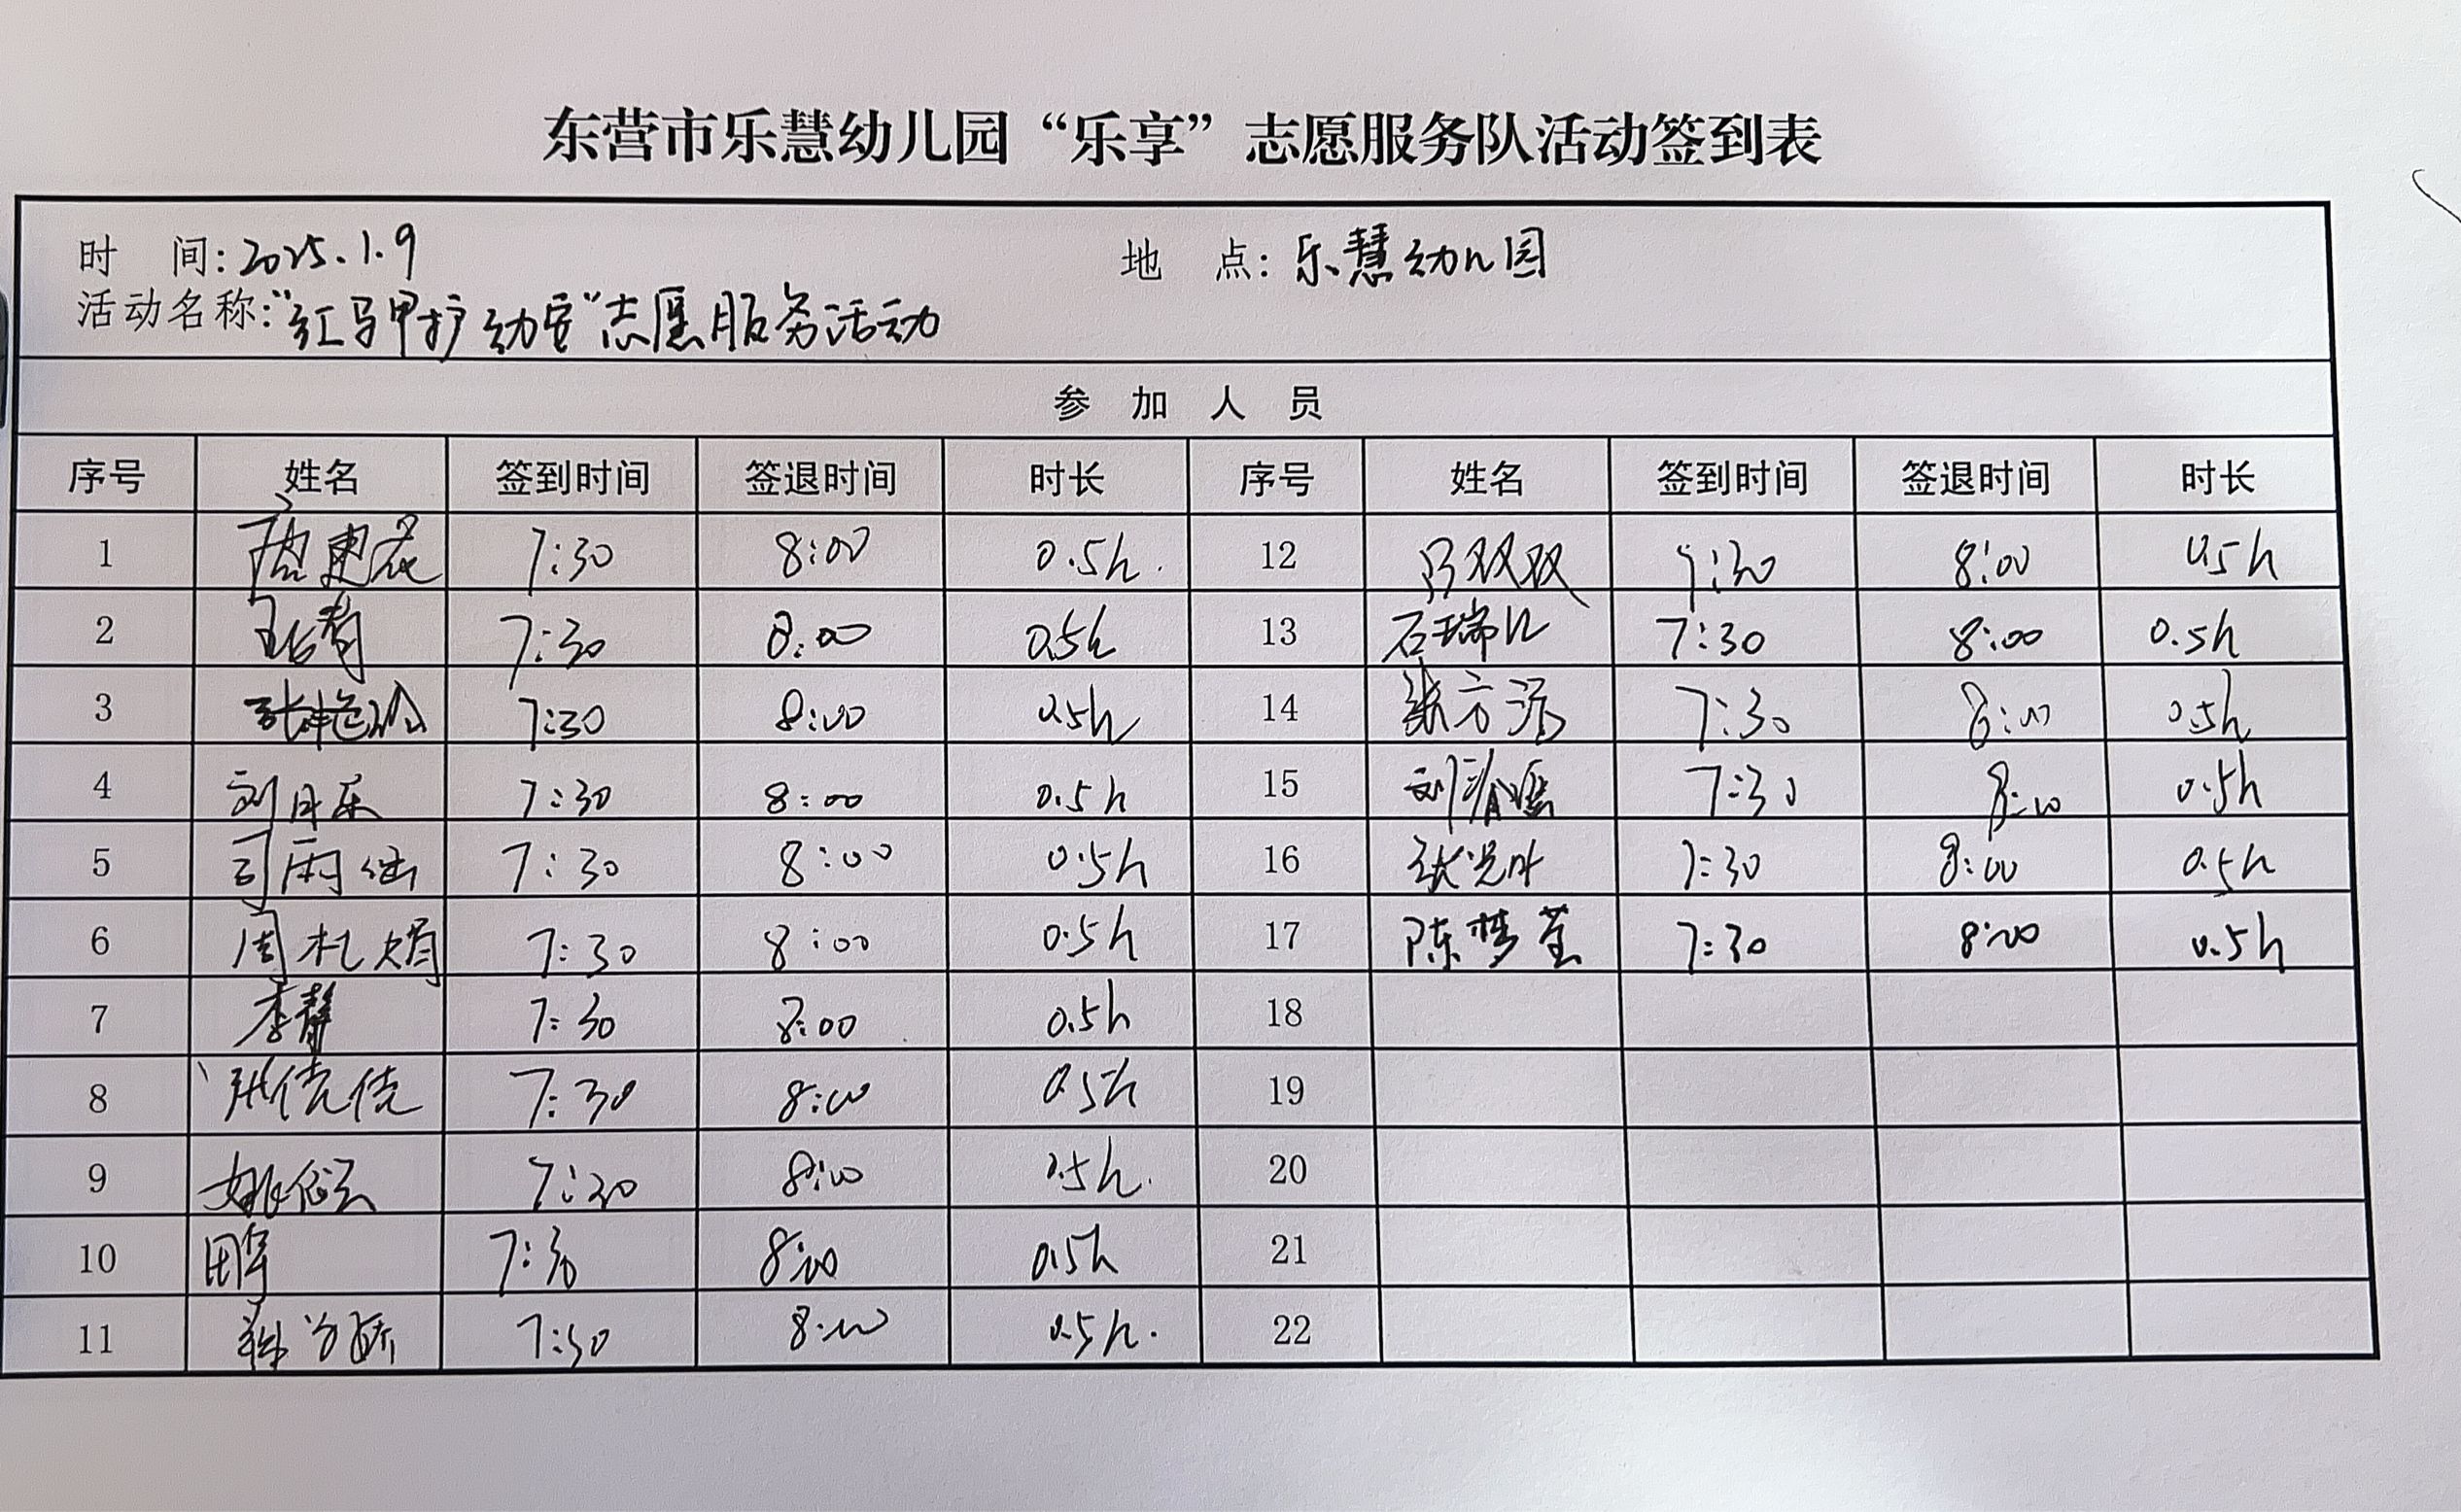 东营市乐慧幼儿园“乐享”志愿服务队活动签到表
时 间：2025.1.9 地 点：乐慧幼儿园
活动名称：“红马甲护幼安”志愿服务活动
参 加 人 员
序号 姓名 签到时间 签退时间 时长 序号 姓名 签到时间 签退时间 时长
1 7:30 8:00 0.5h. 12 吕双双 7:30 8:00 0.5h
2 7:30 8:00 0.5h 13 石瑞 7:30 8:00 0.5h
3 张艳 7:30 8:00 0.5h 14 7:30 8:00 0.5h
4 刘月乐 7:30 8:00 0.5h 15 刘 7:30 8:00 0.5h
5 司雨 7:30 8:00 0.5h 16 张 7:30 8:00 0.5h
6 周札娟 7:30 8:00 0.5h 17 陈梦莹 7:30 8:00 0.5h
7 李静 7:30 8:00 0.5h 18
8 7:30 8:00 0.5h 19
9 姚 7:30 8:00 0.5h. 20
10 田宇 7:30 8:00 0.5h 21
11 7:30 8:00 0.5h. 22